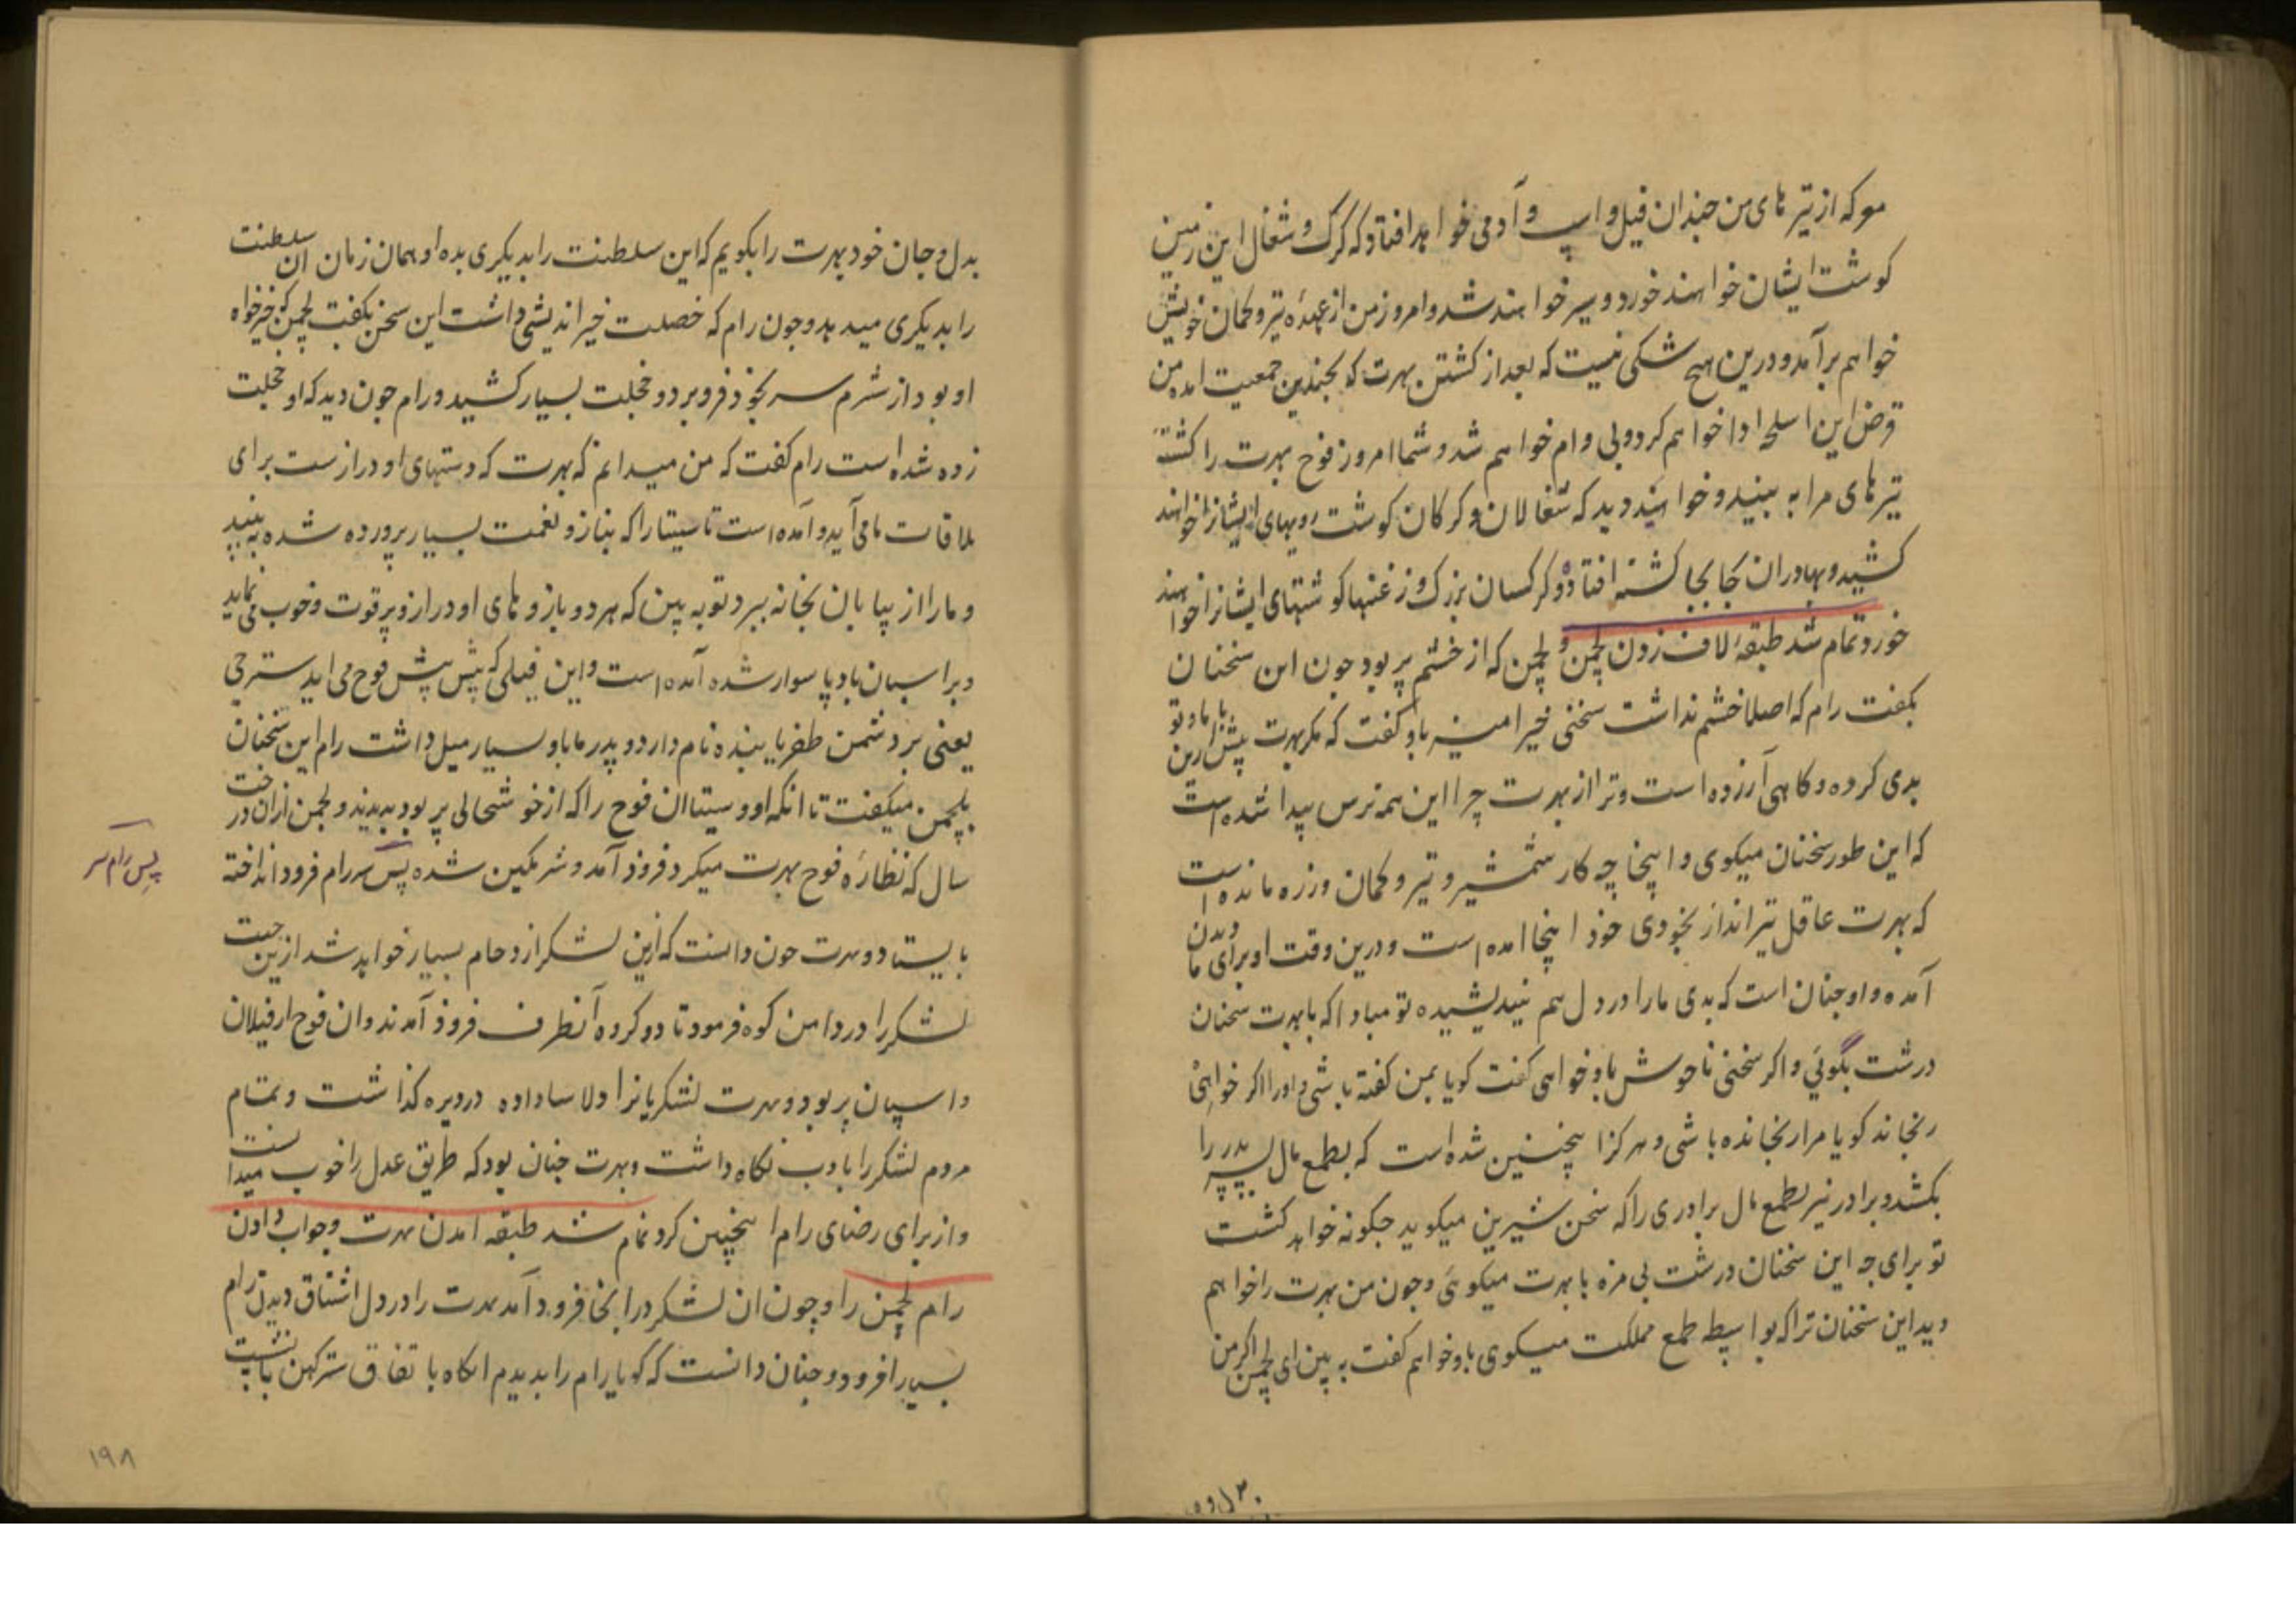 موکه از تیرهای من چندان فیل و اسپ و آدمی خواهد افتاد که کرک و شغال این زمین
کوشت ایشان خواهند خورد و سیر خواهند شد و امروز من از عهدهٔ تیر و کمان خویش
خواهم برآمد و درین هیچ شکی نیست که بعد از کشتن بهرت که بچندین جمعیت امده من
قرض این اسلحه ادا خواهم کرد و بی وام خواهم شد و شما امروز فوج بهرت را کشته
تیرهای مرا به بینید و خواهید دید که شغالان و کرکان کوشت رویهای ایشانرا خواهند
کشید و بهادران جابجا کشته افتاده و کرکسان بزرک و زغنها کوشتهای ایشانرا خواهند
خورد تمام شد طبقهٔ لاف زدن لچمن و لچمن که از خشم پر بود چون این سخنان
بکفت رام که اصلا خشم نداشت سخنی خیر امیز باو کفت که مکر بهرت پیش ازین با ما و تو
بدی کرده و کاهی آرزده است و ترا از بهرت چرا این همه ترس پیدا شده است
که این طور سخنان میکوی و اینجا چه کار شمشیر و تیر و کمان و زره مانده است
که بهرت عاقل تیرانداز بخودی خود اینجا امده است و درین وقت او برای دیدن ما
آمده و او چنان است که بدی ما را در دل هم نیندیشیده تو مبادا که با بهرت سخنان
درشت بگوئی و اکر سخنی ناخوش باو خواهی کفت کویا بمن کفته باشی و اورا اکر خواهی
رنجاند کویا مرا رنجانده باشی و هرکز اینچنین شده است که بطمع مال پسر پدر را
بکشد و برادر نیز بطمع مال برادری را که سخن شیرین میکوید چکونه خواهد کشت
تو برای چه این سخنان درشت بی مزه با بهرت میکوئی و چون من بهرت را خواهم
دید این سخنان ترا که بواسطه طمع مملکت میکوی باو خواهم کفت به بین ای لچمن اکر من
بدل و جان خود بهرت را بکویم که این سلطنت را بدیکری بده او همان زمان ان سلطنت
را بدیکری میدهد و چون رام که خصلت خیر اندیشی داشت این سخن بکفت لچمن که خیرخواه
او بود از شرم سر بخود فرو برد و خجلت بسیار کشید و رام چون دید که او خجلت
زده شده است رام کفت که من میدانم که بهرت که دستهای او درازست برای
ملاقات ما می آید و آمده است تا سیتا را که بناز و نعمت بسیار پرورده شده به بیند
و ما را از بیابان بخانه ببرد تو به بین که هر دو بازوهای او دراز و پر قوت و خوب می نماید
و بر اسپان بادپا سوار شده آمده است و این فیلی که پیش پیش فوج می اید سترجی
یعنی بر دشمن ظفر یابنده نام دارد و پدر ما باو بسیار میل داشت رام این سخنان
بلچمن میکفت تا انکه او و سیتا ان فوج را که از خوشحالی پر بود بدیدند و لچمن ازان درخت
سال که نظارهٔ فوج بهرت میکرد فرود آمد و شرمکین شده پس سر رام فرود انداخته
پس رام سر
بایستاد و بهرت چون دانست که ازین لشکر ازدحام بسیار خواهد شد ازین جهت
لشکر را در دامن کوه فرمود تا دو کروه آنطرف فرود آمدند و ان فوج از فیلان
و اسپان پر بود و بهرت لشکریانرا دلاسا داده در دیره کذاشت و تمام
مردم لشکر را بادب نکاه داشت و بهرت چنان بود که طریق عدل را خوب میدانست
و از برای رضای رام اینچنین کرد تمام شد طبقه امدن بهرت و جواب دادن
رام لچمن را و چون ان لشکر در انجا فرود آمد بهرت را در دل اشتیاق دیدن رام
بسیار افزود و چنان دانست که کویا رام را بدیدم انکاه با تفاق سترکهن
۱۹۸